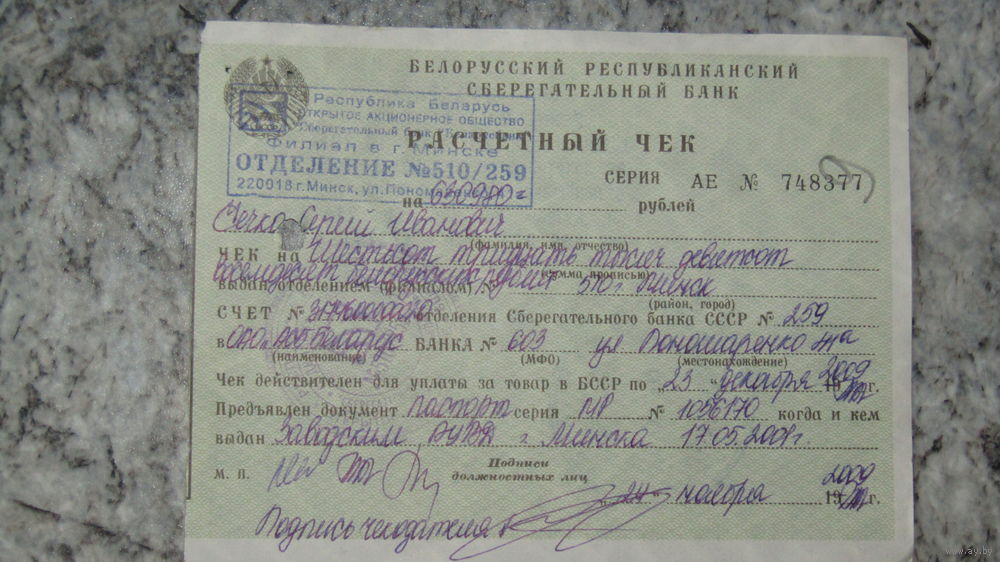 БЕЛОРУССКИЙ РЕСПУБЛИКАНСКИЙ
СБЕРЕГАТЕЛЬНЫЙ БАНК
Республика Беларусь
ОТКРЫТОЕ АКЦИОНЕРНОЕ ОБЩЕСТВО
Сберегательный банк
Филиал в г. Минске
ОТДЕЛЕНИЕ №510/259
220018 г. Минск, ул.
РАСЧЕТНЫЙ ЧЕК
СЕРИЯ АЕ № 748377
на 630980= рублей
Сергей Иванович
(фамилия, имя, отчество)
ЧЕК на Шестьсот тридцать тысяч девятсот
(сумма прописью)
восемдесят белорусских рублей
выдан отделением (филиалом) № 510 г. Минск
(район, город)
СЧЕТ № отделения Сберегательного банка СССР № 259
в ОАО "АСБ Беларус БАНКА № 603 ул Пономаренко
(наименование) (МФО) (местонахождение)
Чек действителен для уплаты за товар в БССР по „ 23 " декабря 2009 г.
Предъявлен документ паспорт серия МР № 1036170 когда и кем
выдан Заводским г. Минска 17.05.2001г.
М. П.
Подписи
должностных лиц
24 ноября 2009 г.
Подпись чекодателя
www.ay.by